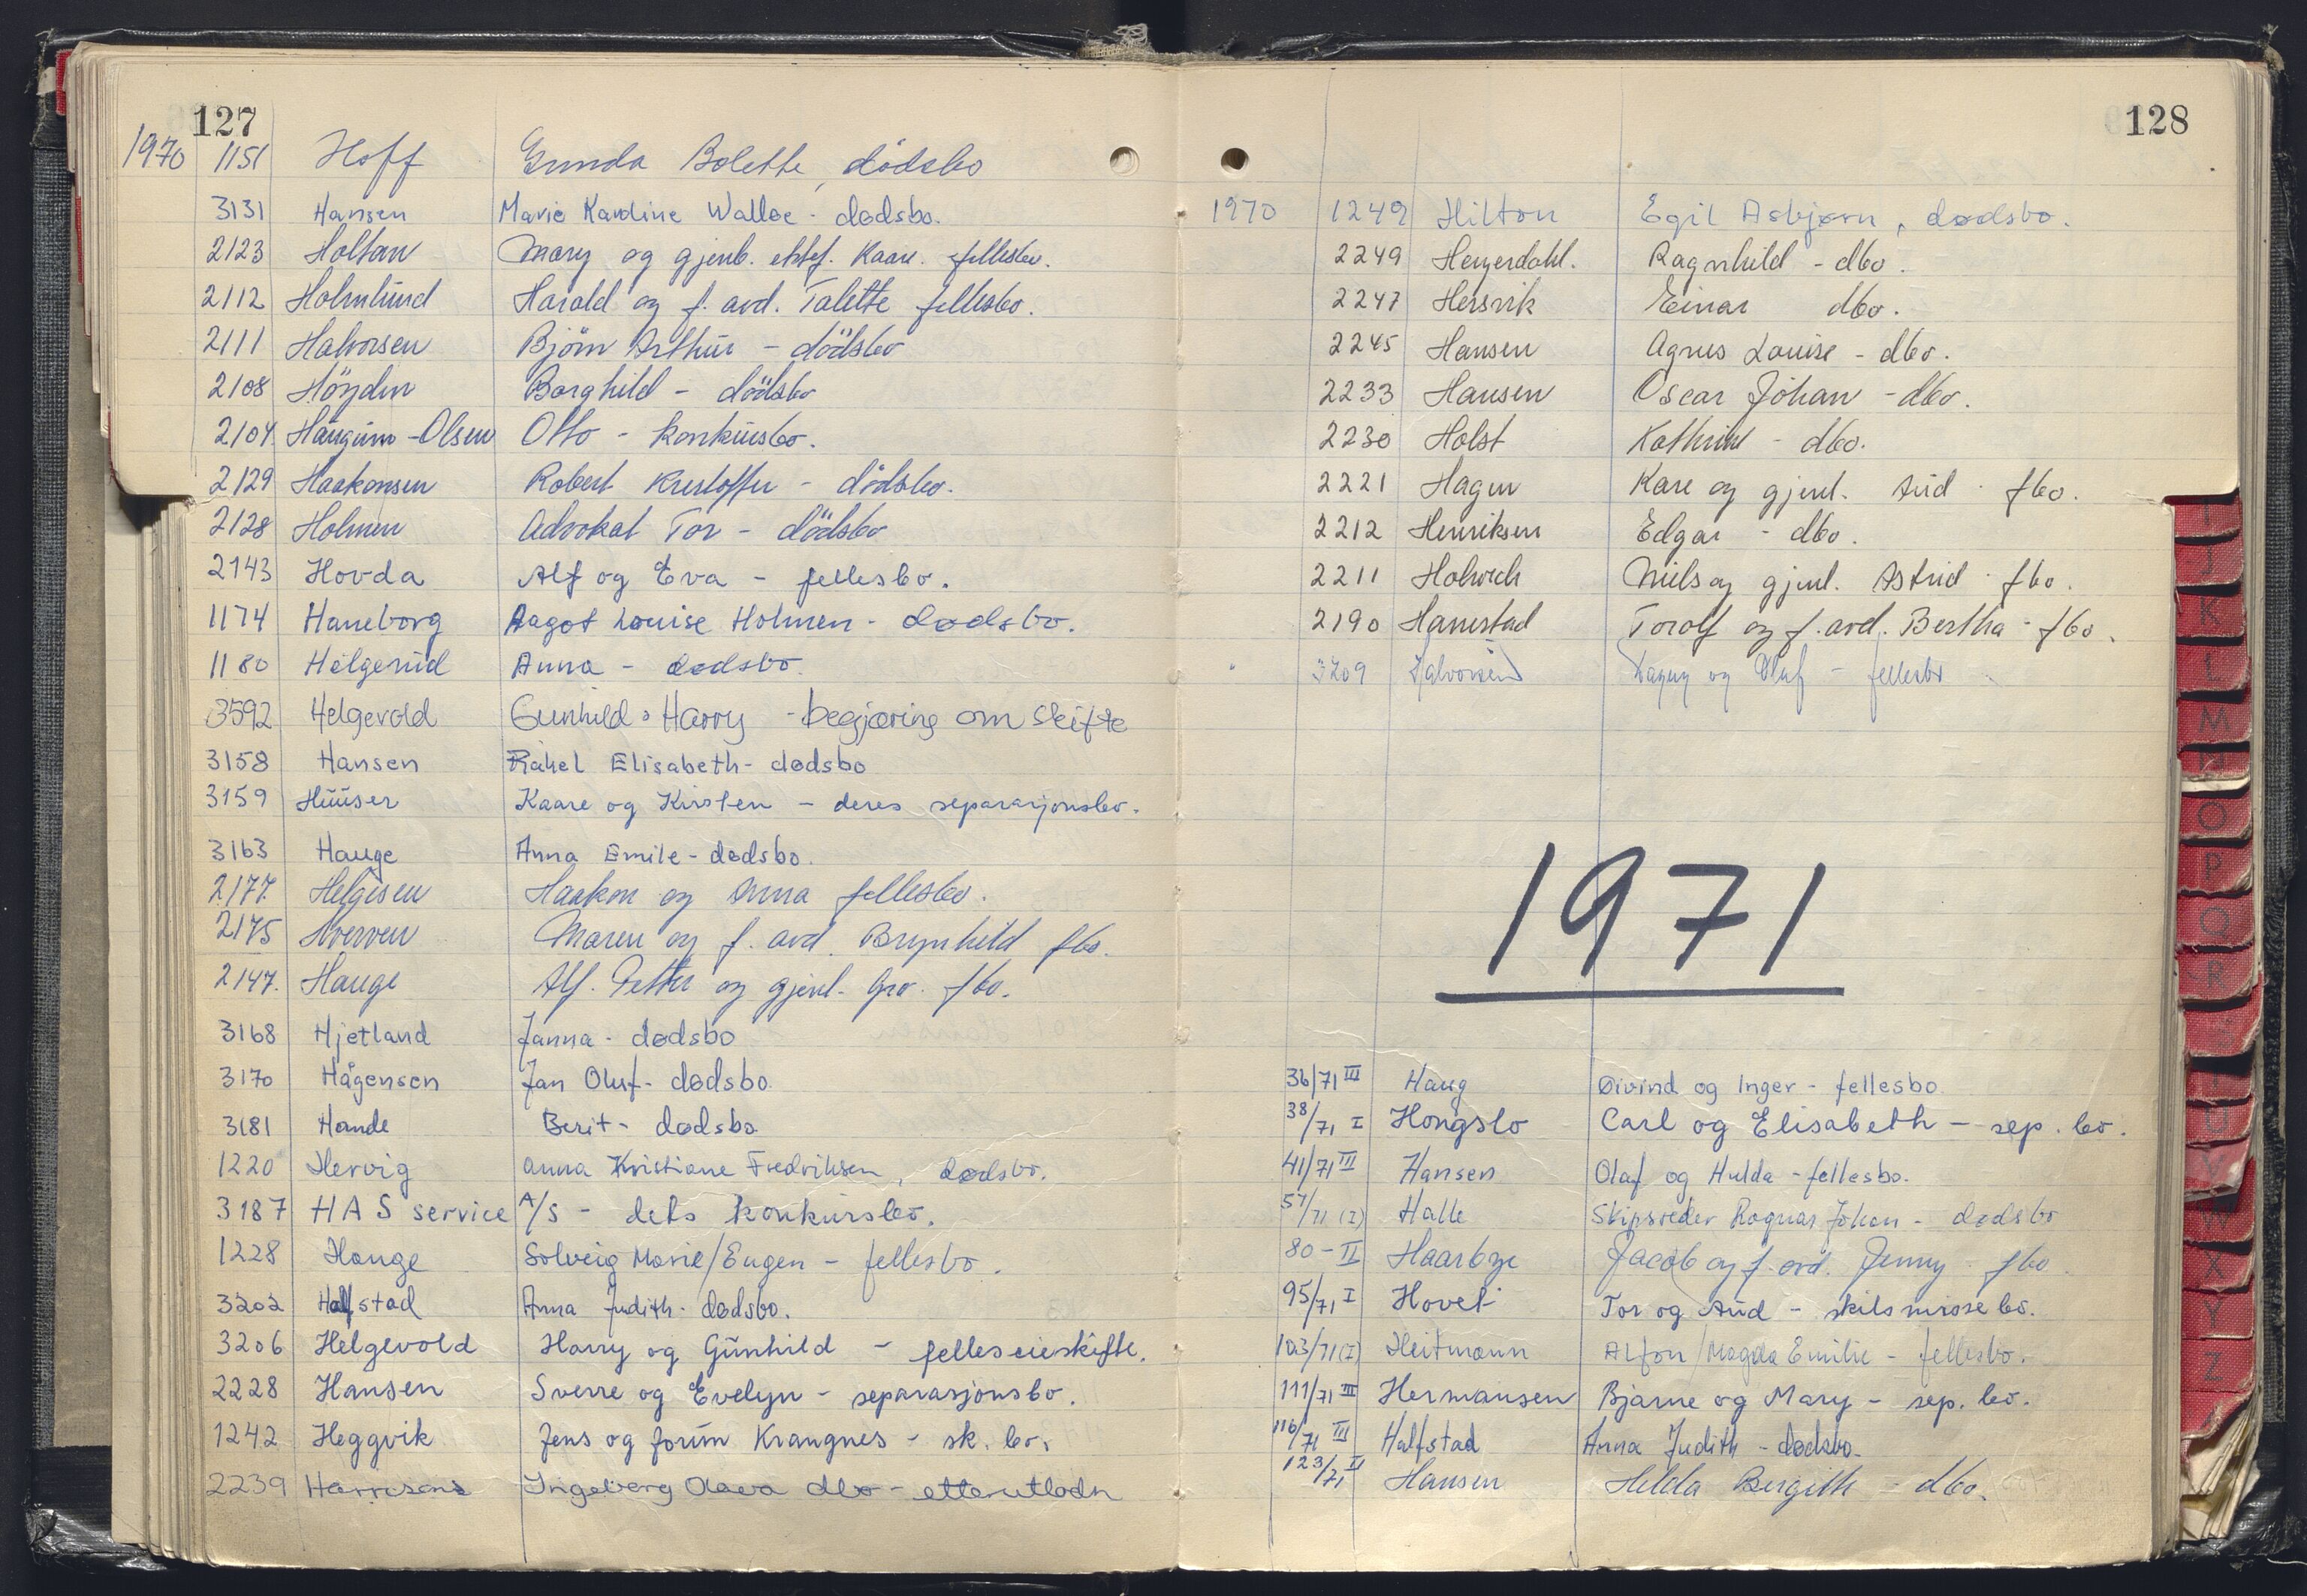 127
1970 1151 Hoff Gunda Bolette, dödsbo
3131 Hansen Marie Karoline Walløe - dødsbo.
2123 Holtan Mary og gjenl. ektef. Kaare. fellesbo.
2112 Holmlund Harald og f. avd. Talette fellesbo.
2111 Halvorsen Björn Arthur - dödsbo
2108 Höyden Borghild - dödsbo
2104 Haugum-Olsen Otto - konkursbo.
2129 Haakonsen Robert Kristoffer - dödsbo.
2128 Holmen Advokat Tor - dödsbo
2143 Hovda Alf og Eva - fellesbo.
1174 Haneborg Aagot Louise Holmen - dødsbo.
1180 Helgerud Anna - dødsbo.
3592 Helgevold Gunhild & Harry - begjæring om skifte
3158 Hansen Rakel Elisabeth - dødsbo
3159 Huuser Kaare og Kirsten - deres separasjonsbo.
3163 Hauge Anna Emile - dødsbo.
2177. Helgesen Haakon og Anna fellesbo.
2175 Hverven Maren og f. avd. Brynhild fbo.
2147. Hauge Alf. Petter og gjenl. Gro. fbo.
3168 Hjetland Janna - dødsbo
3170 Hågensen Jan Oluf - dødsbo.
3181 Hande Berit - dødsbo
1220 Hervig Anna Kristiane Fredriksen, dødsbo.
3187 HAS service A/S - dets konkursbo.
1228 Hauge Solveig Marie/Eugen - fellesbo.
3202 Halfstad Anna Judith - dødsbo.
3206 Helgevold Harry og Gunhild - felleseieskifte.
2228 Hansen Sverre og Evelyn - separasjonsbo.
1242 Heggvik Jens og Jorun Krangnes - sk. bo.
2239 Ingeborg Olava dbo - etterutlodn
128
1970 1249 Hilton Egil Asbjørn, dødsbo.
2249 Heyerdahl. Ragnhild - dbo.
2247 Hersvik Einar dbo.
2245 Hansen Agnes Louise - dbo.
2233 Hansen Oscar Johan - dbo.
2230 Holst Kathrine - dbo.
2221 Hagen Kare og gjenl. Aud - fbo.
2212 Henriksen Edgar - dbo.
2211 Holwech Niels og gjenl. Astrid - fbo.
2190 Hanestad Torolf og f. avd. Bertha - fbo.
" 3209 Halvorsen Dagny og Oluf - fellesbo
1971
36/71 III Haug Øivind og Inger - fellesbo
38/71 I Hongslo Carl og Elisabeth - sep. bo.
41/71 III Hansen Olaf og Hulda - fellesbo.
57/71 (I) Halle Skipsreder Ragnar Johan - dødsbo
80 - II Haarbye Jacob og f. avd. Jenny - fbo.
95/71 I Hovet Tor og Aud - skilsmissebo.
103/71 (I) Heitmann Alfon/Magda Emilie - fellesbo.
111/71 III Hermansen Bjarne og Mary - sep. bo.
116/71 III Halfstad Anna Judith - dødsbo.
123/71 II Hansen Helda Bergith - dbo.
I
J
K
L
M
N
O
P
Q
R
U
V
W
X
Y
Z